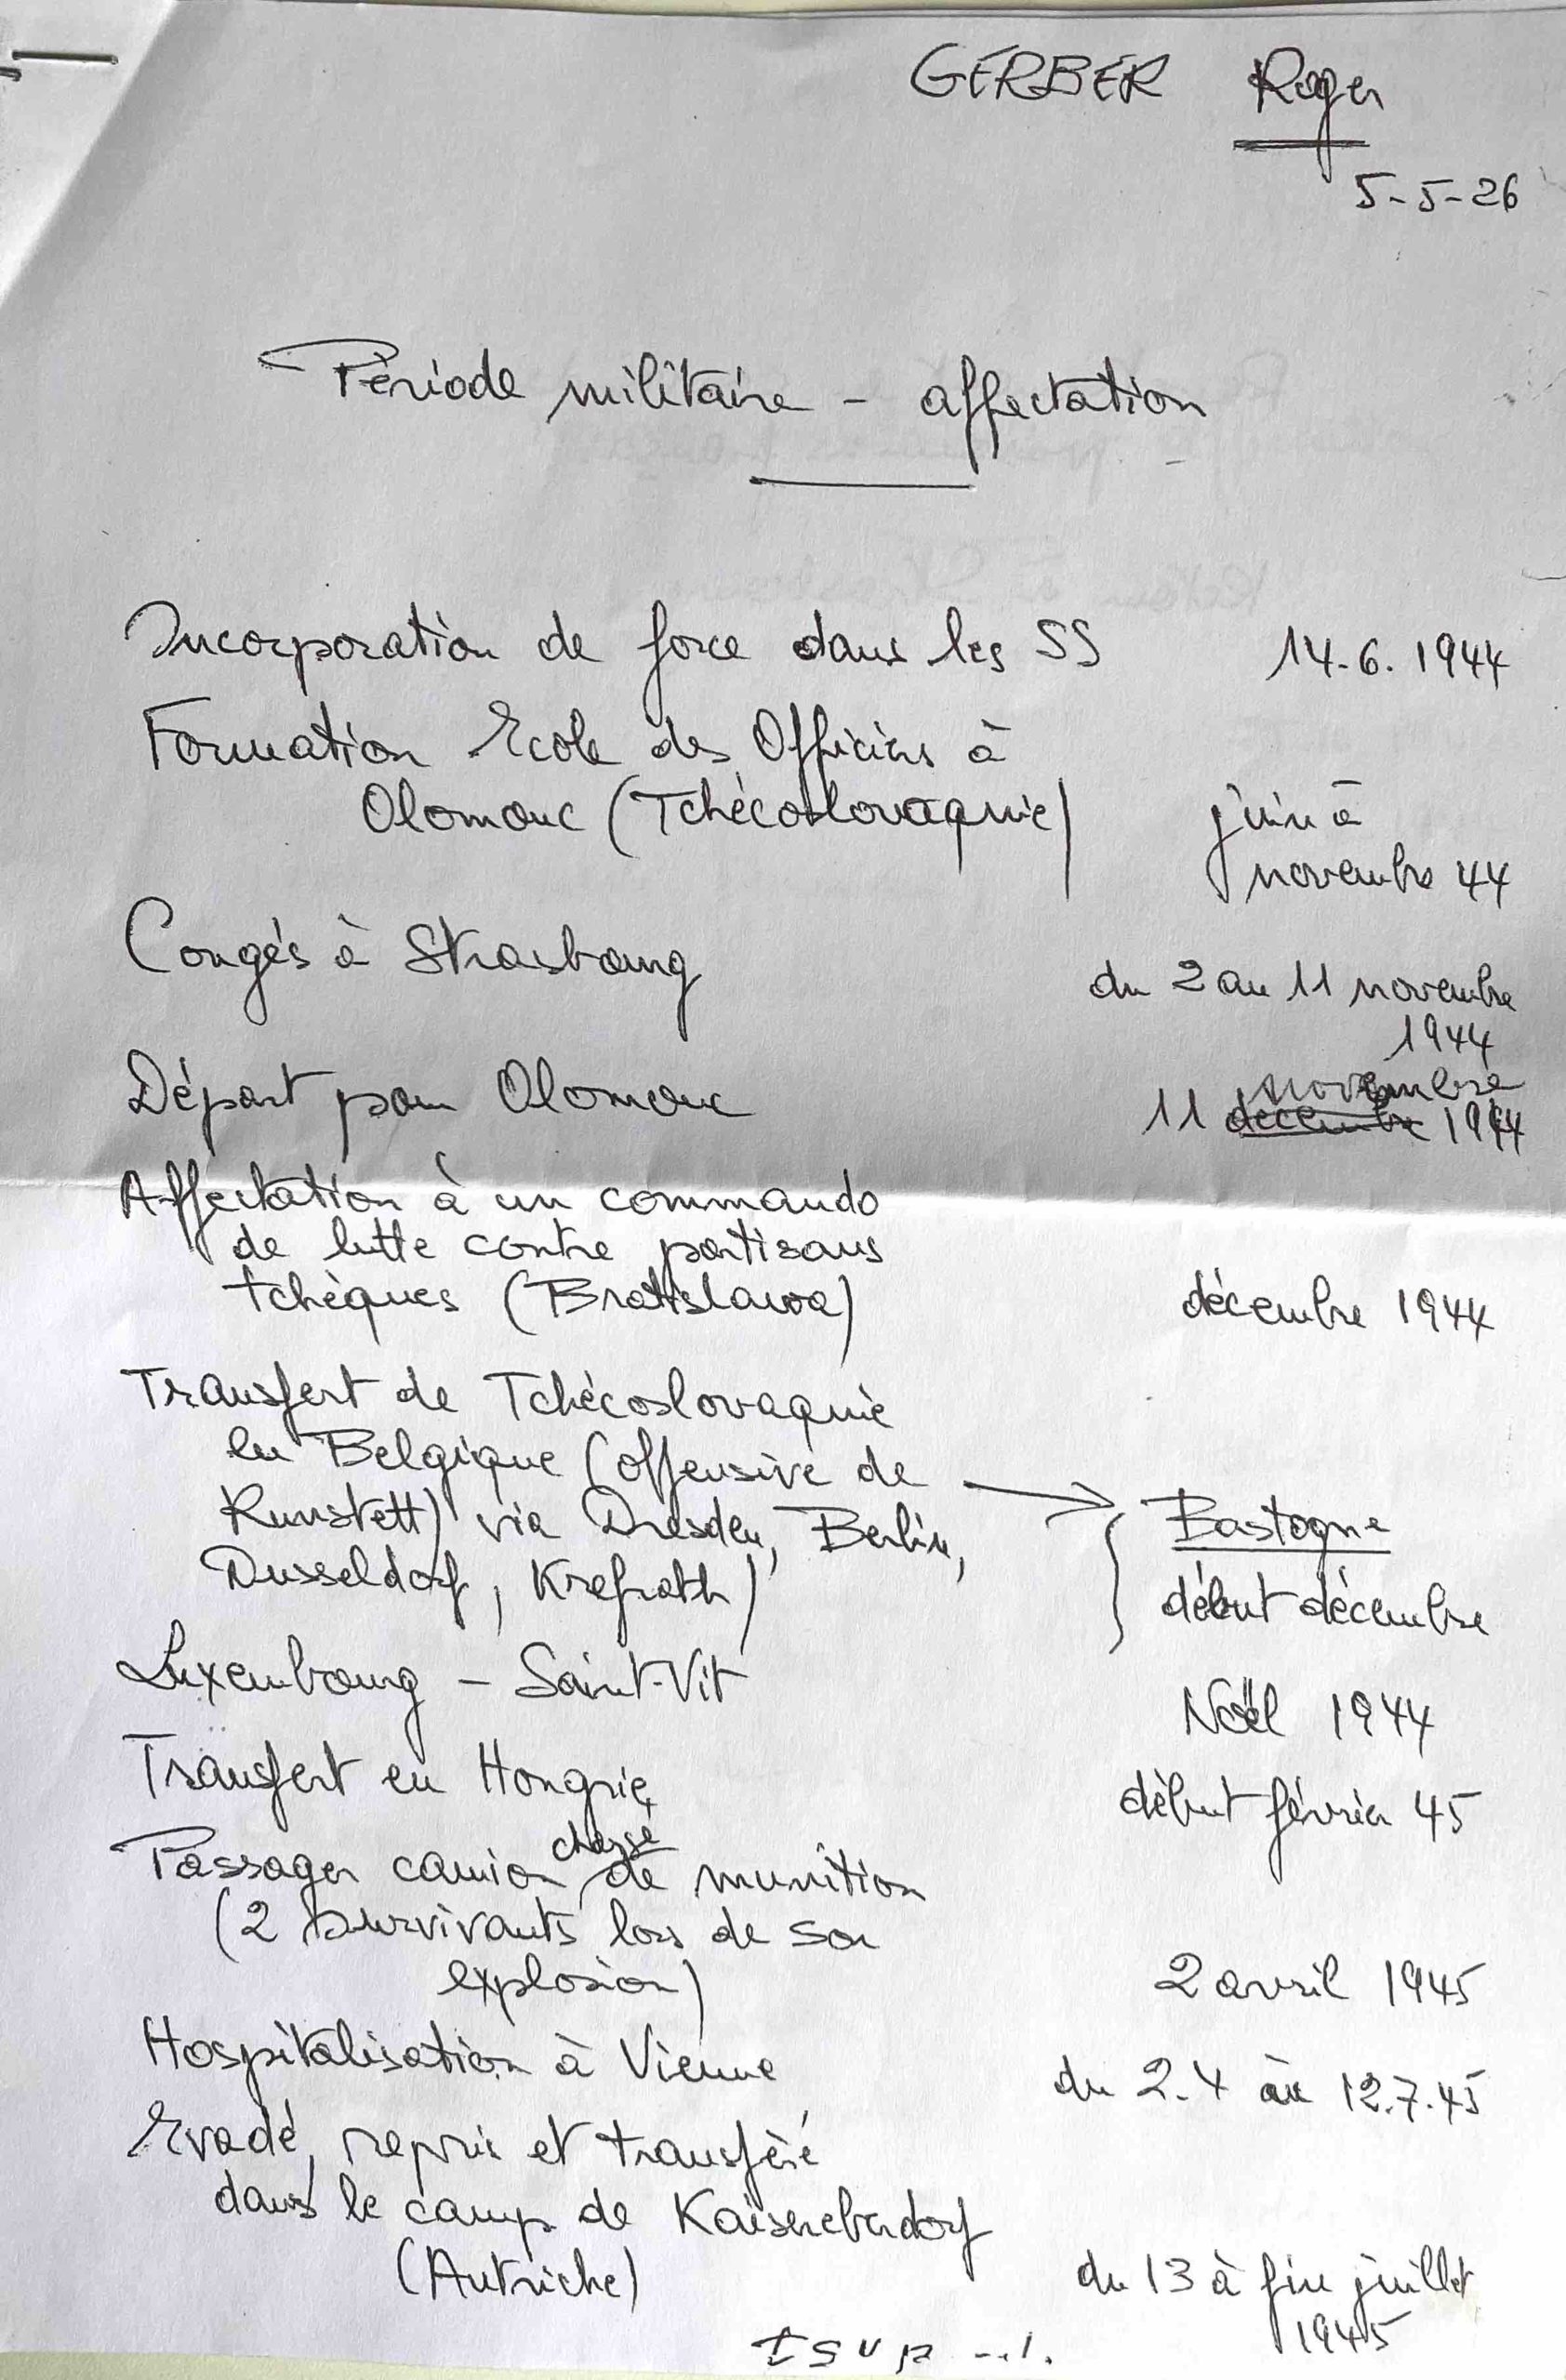 GERBER Roger
5-5-26
Période militaire - affectation
Incorporation de force dans les SS 14.6.1944
Formation Ecole des Officiers à
Olomouc (Tchécoslovaquie) juin à
novembre 44
Congés à Strasbourg du 2 au 11 novembre
1944
Départ pour Olomouc 11 décembre novembre 1944
Affectation à un commando
de lutte contre partisans
tchèques (Bratislawa) décembre 1944
Transfert de Tchécoslovaquie
en Belgique (offensive de → Bastogne
Runstett) via Dresden, Berlin,
Dusseldorf, Krefrath) début décembre
Luxembourg - Saint-Vit Noël 1944
Transfert en Hongrie début février 45
Passager camion chargé de munition
(2 survivants lors de son
explosion) 2 avril 1945
Hospitalisation à Vienne du 2.4 au 12.7.45
Evadé, repris et transféré
dans le camp de Kaiserebersdorf
(Autriche) du 13 à fin juillet
1945